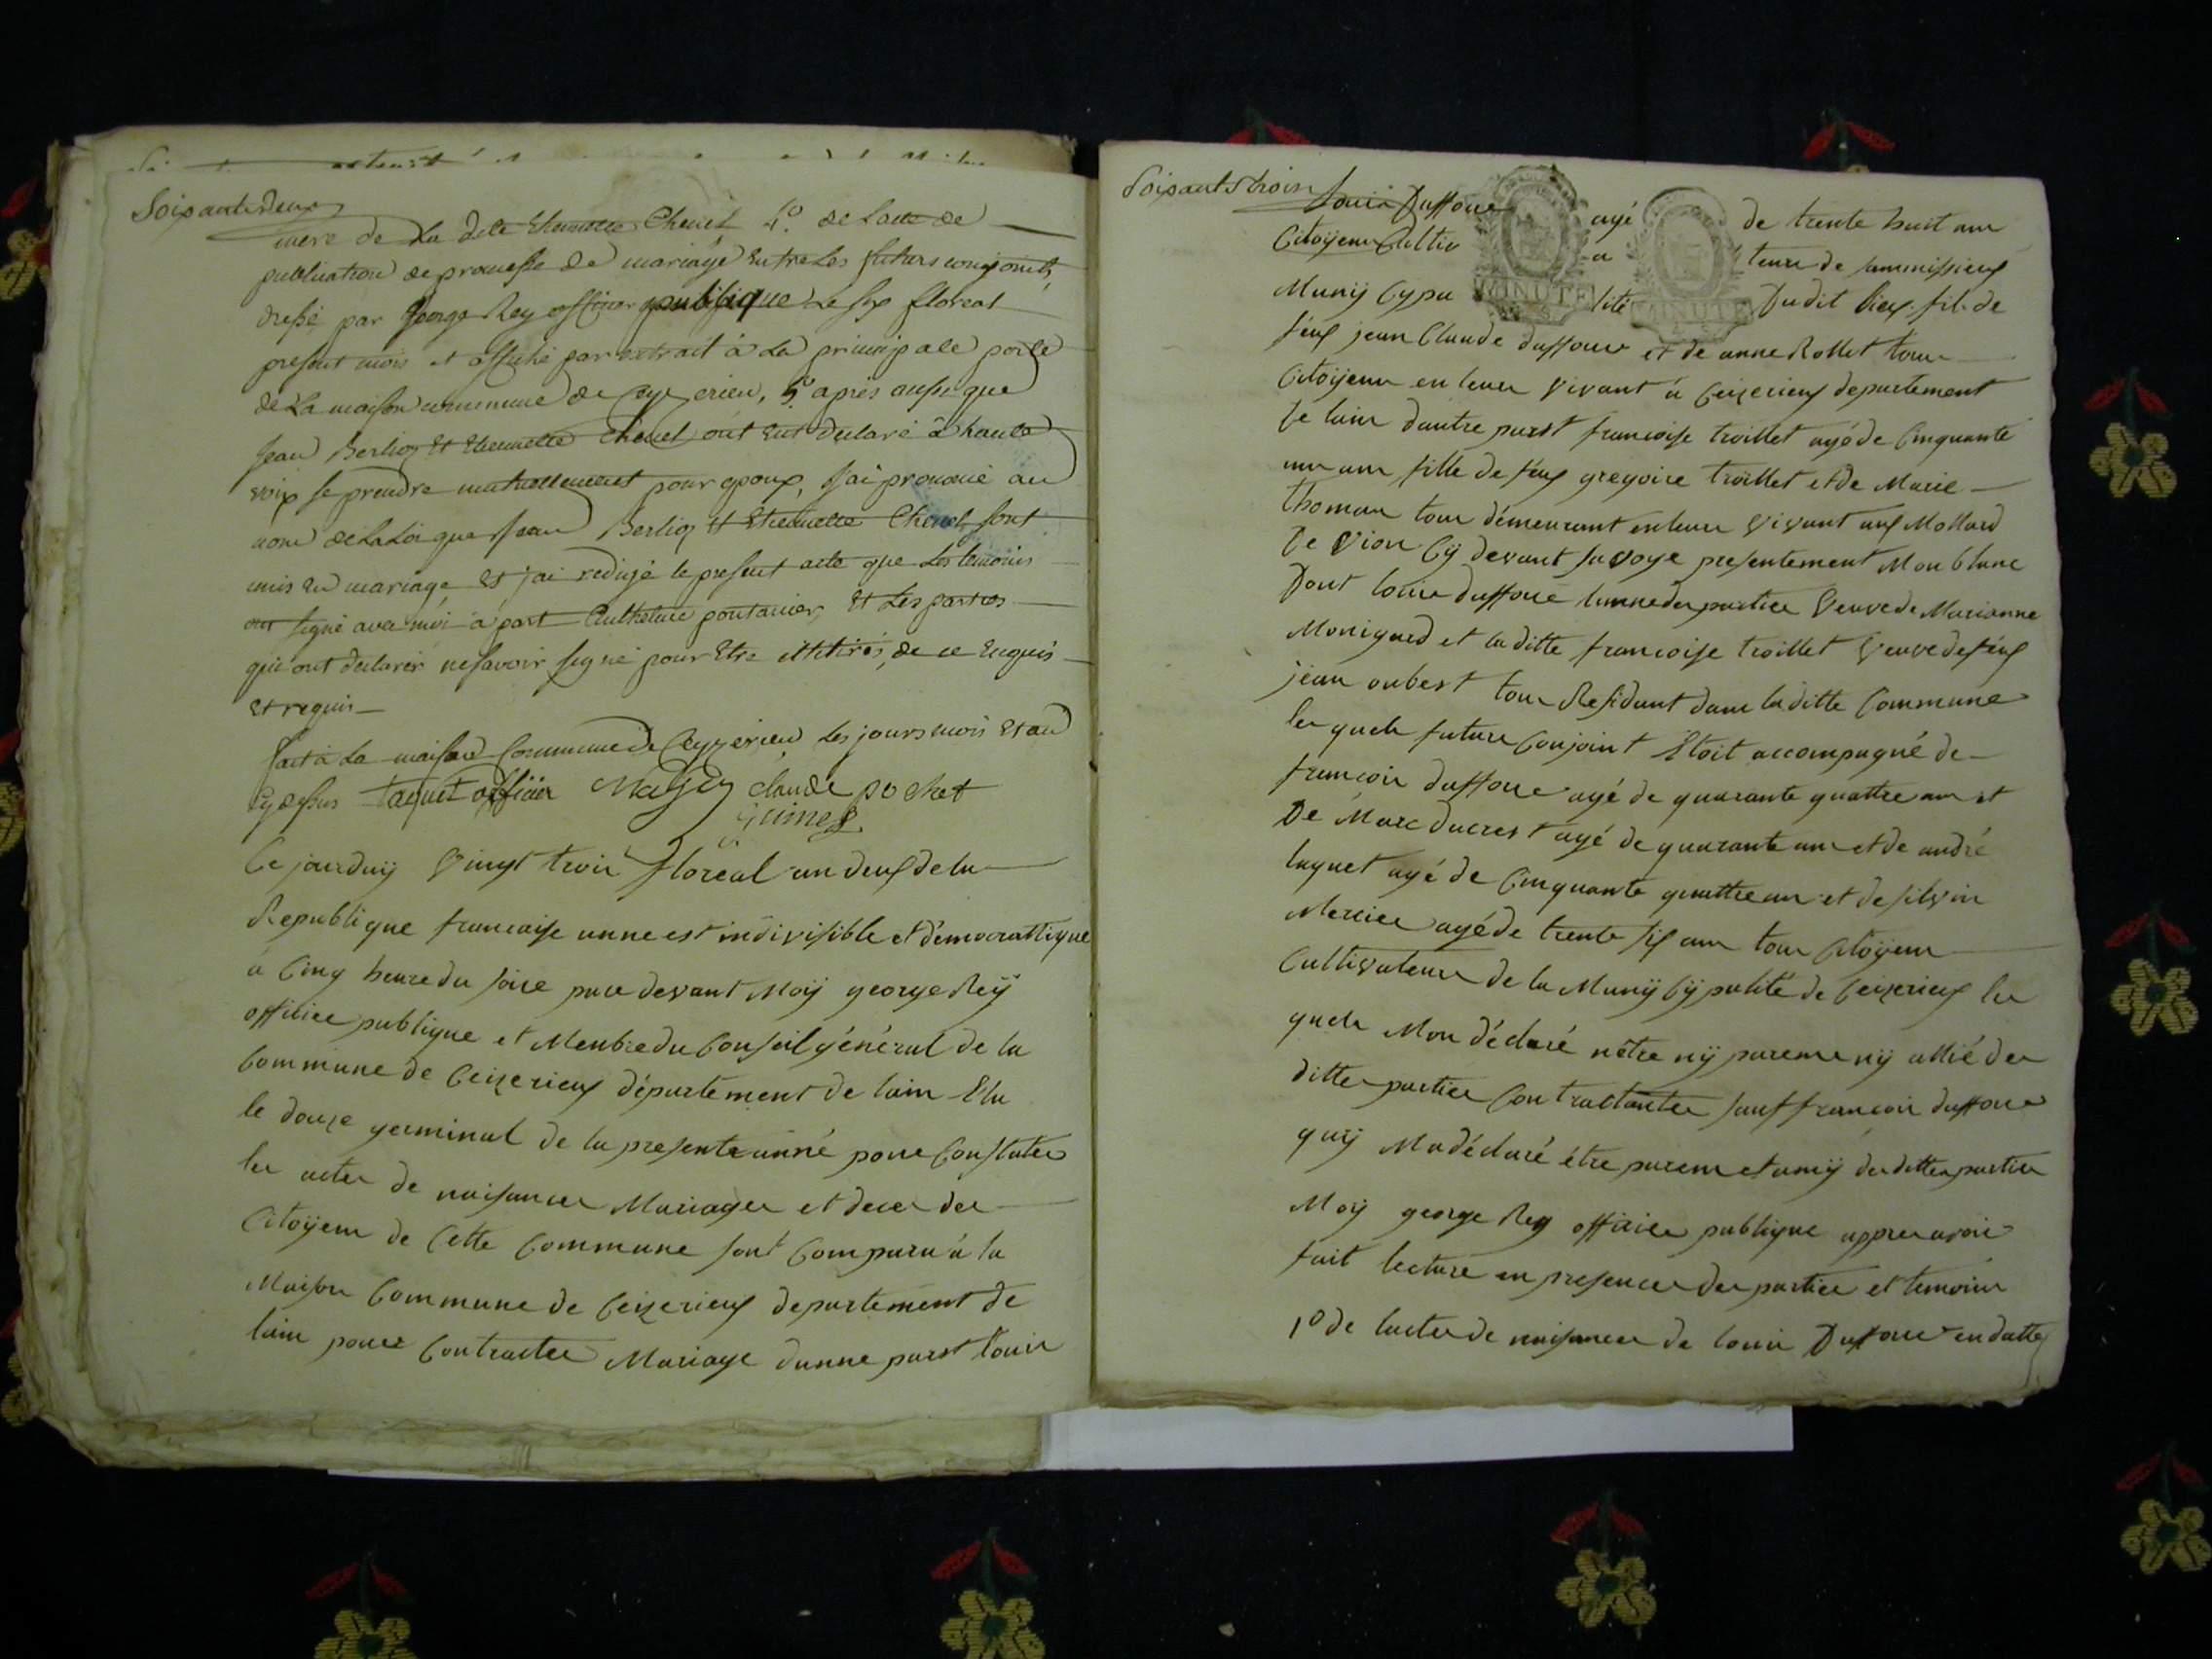 Soixante deux
mere de La dite Etiennette Chenet 4.º de Lacte de
publication de promesse de mariage Entre Les futurs conjoints,
dressé par George Rey officier publique Le six floreal
present mois et affiché par extrait à La principale porte
de La maison commune de Ceyzerieu, 5º apres aussi que
Jean Berlioz Et Etiennette Chenet ont Eut declaré à haute
voix se prendre mutuellement pour epoux, J'ai prononcé au
nom de La Loi que Jean Berlioz Et Etiennette Chenet sont
unis en mariage Et j'ai redigé le present acte que Les temoins
ont signé avec moi à part Anthelme pontanier, Et Les parties
qui ont declarés ne savoir signé pour Etre illitirés, de ce Enquis
Et requis
fait à La maison Commune de Ceyzerieu Les jours mois Et an
Cydessus taquet officier claude pochet
Ce jourduij Vingt troie floreal an deux de la
Republique francaise unne est indivisible et démocrattique
a Cinq heure du soire pare devant Moij george Reÿ
officiee publique et Menbre du Conseil général de la
Commune de Ceizerieux département de lain Elu
le douze germinal de la presente anné poure Constatee
les actes de naisances Mariages et deces des
Citoÿens de Cette Commune sont Comparu a la
Maison Commune de Ceizerieux departement de
lain poure Contractee Mariage dunne parst louis
Soixante trois
Louis Duffoure agé de trente huit ans
Citoÿens Cultivateure de sammissieux
Munij Cypalité Dudit lieux fils de
féux jean Claude duffoure et de anne Rollet tous
Citoÿens en leures Vivant à Ceizerieux departement
De lain dautre parst francoise troillet agé de Cinquante
un ans fille de féux gregoire troillet et de Marie
thomas tous démeurant en leure Vivant aux Mollard
De Vion Cÿ devant savoye presentement Mon blanc
Dont louis duffoure lunne des parties Veuve de Marianne
Monigard et la ditte francoise troillet Veuve de féux
jean oubest tous Residant dans la ditte Commune
les quels future Conjoint Etoit accompagné de
francois duffoure agé de quarante quattre ans et
De Marc ducrest agé de quarante ans et de andré
taquet agé de Cinquante quattre ans et de silvin
Mercier agé de trente six ans tous Citoÿens
Cultivateure de la Munij Cÿ palité de Ceizerieux les
quels Mon déclaré nétre nÿ parens nÿ allié des
dittes parties Contractantes sauf francois duffoure
quij Ma déclaré étre parens et amij des dittes parties
Moij george Rey officiee publique appres avoire
fait lecture en presences des parties et temoins
1º de lactes de naisances de louis Duffoure en datte
MINUTE
MINUTE